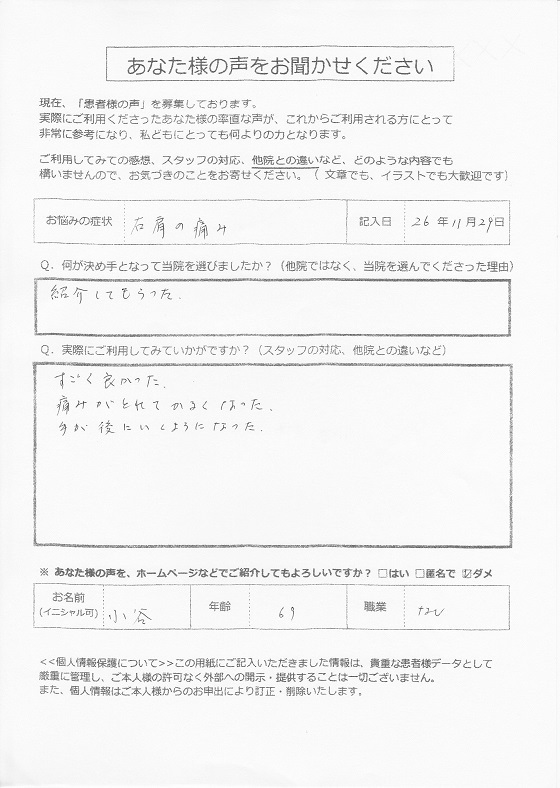 あなた様の声をお聞かせください
現在、「患者様の声」を募集しております。
実際にご利用くださったあなた様の率直な声が、これからご利用される方にとって
非常に参考になり、私どもにとっても何よりの力となります。
ご利用してみての感想、スタッフの対応、他院との違いなど、どのような内容でも
構いませんので、お気づきのことをお寄せください。（文章でも、イラストでも大歓迎です）
お悩みの症状 右肩の痛み 記入日 26年11月29日
Q．何が決め手となって当院を選びましたか？（他院ではなく、当院を選んでくださった理由）
紹介してもらった.
Q．実際にご利用してみていかがですか？（スタッフの対応、他院との違いなど）
すごく良かった.
痛みがとれてかるくなった.
手が後にいくようになった.
※ あなた様の声を、ホームページなどでご紹介してもよろしいですか？ □はい □匿名で ☑ダメ
お名前 (イニシャル可) 小谷 年齢 69 職業 なし
<<個人情報保護について>>この用紙にご記入いただきました情報は、貴重な患者様データとして
厳重に管理し、ご本人様の許可なく外部への開示・提供することは一切ございません。
また、個人情報はご本人様からのお申出により訂正・削除いたします。